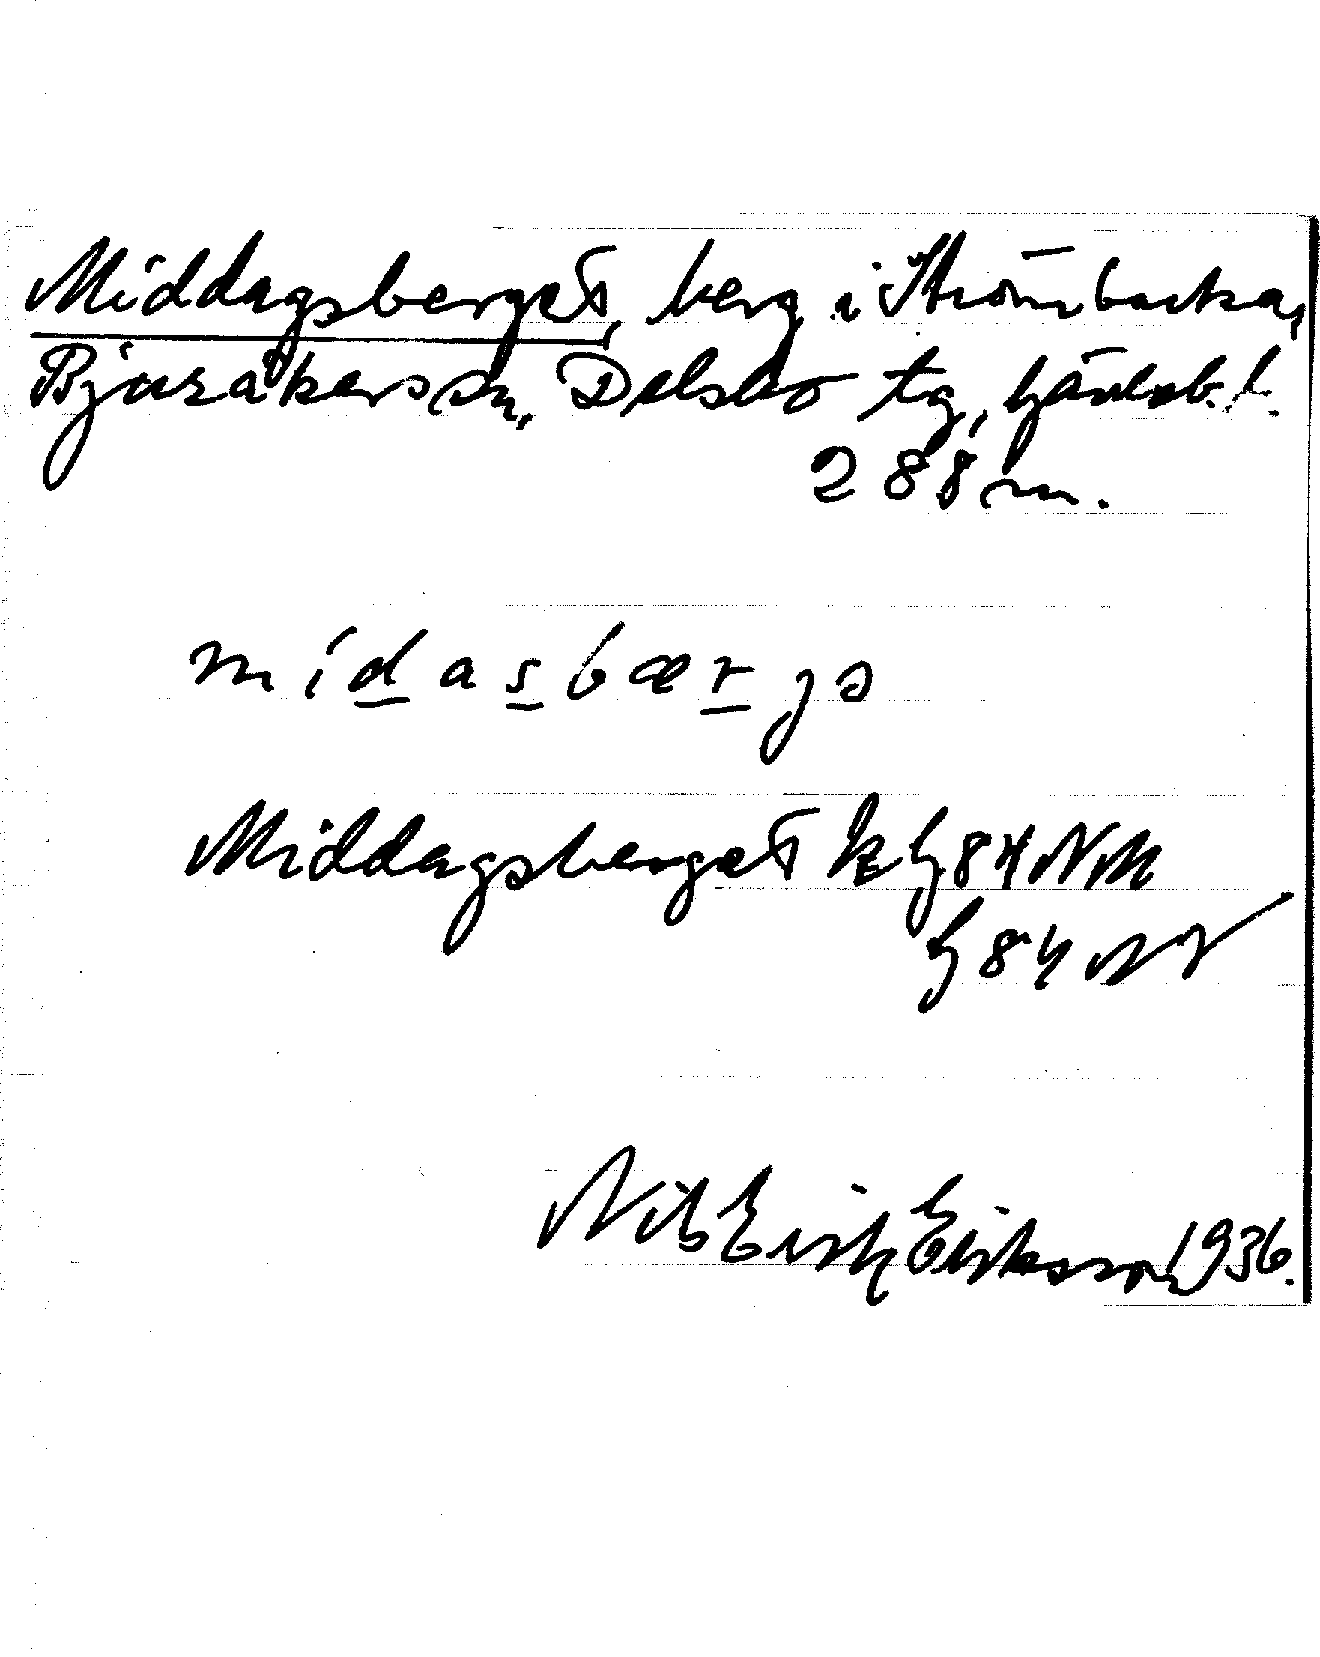 Middagsberget, berg i Strömbacka,
Bjuråkers sn, Delsbo tg, Gävleb. l.
288 m.
mídasbærjə
Middagsberget k G 84 NM
G 84 NV
Nils Erik Eriksson 1936.